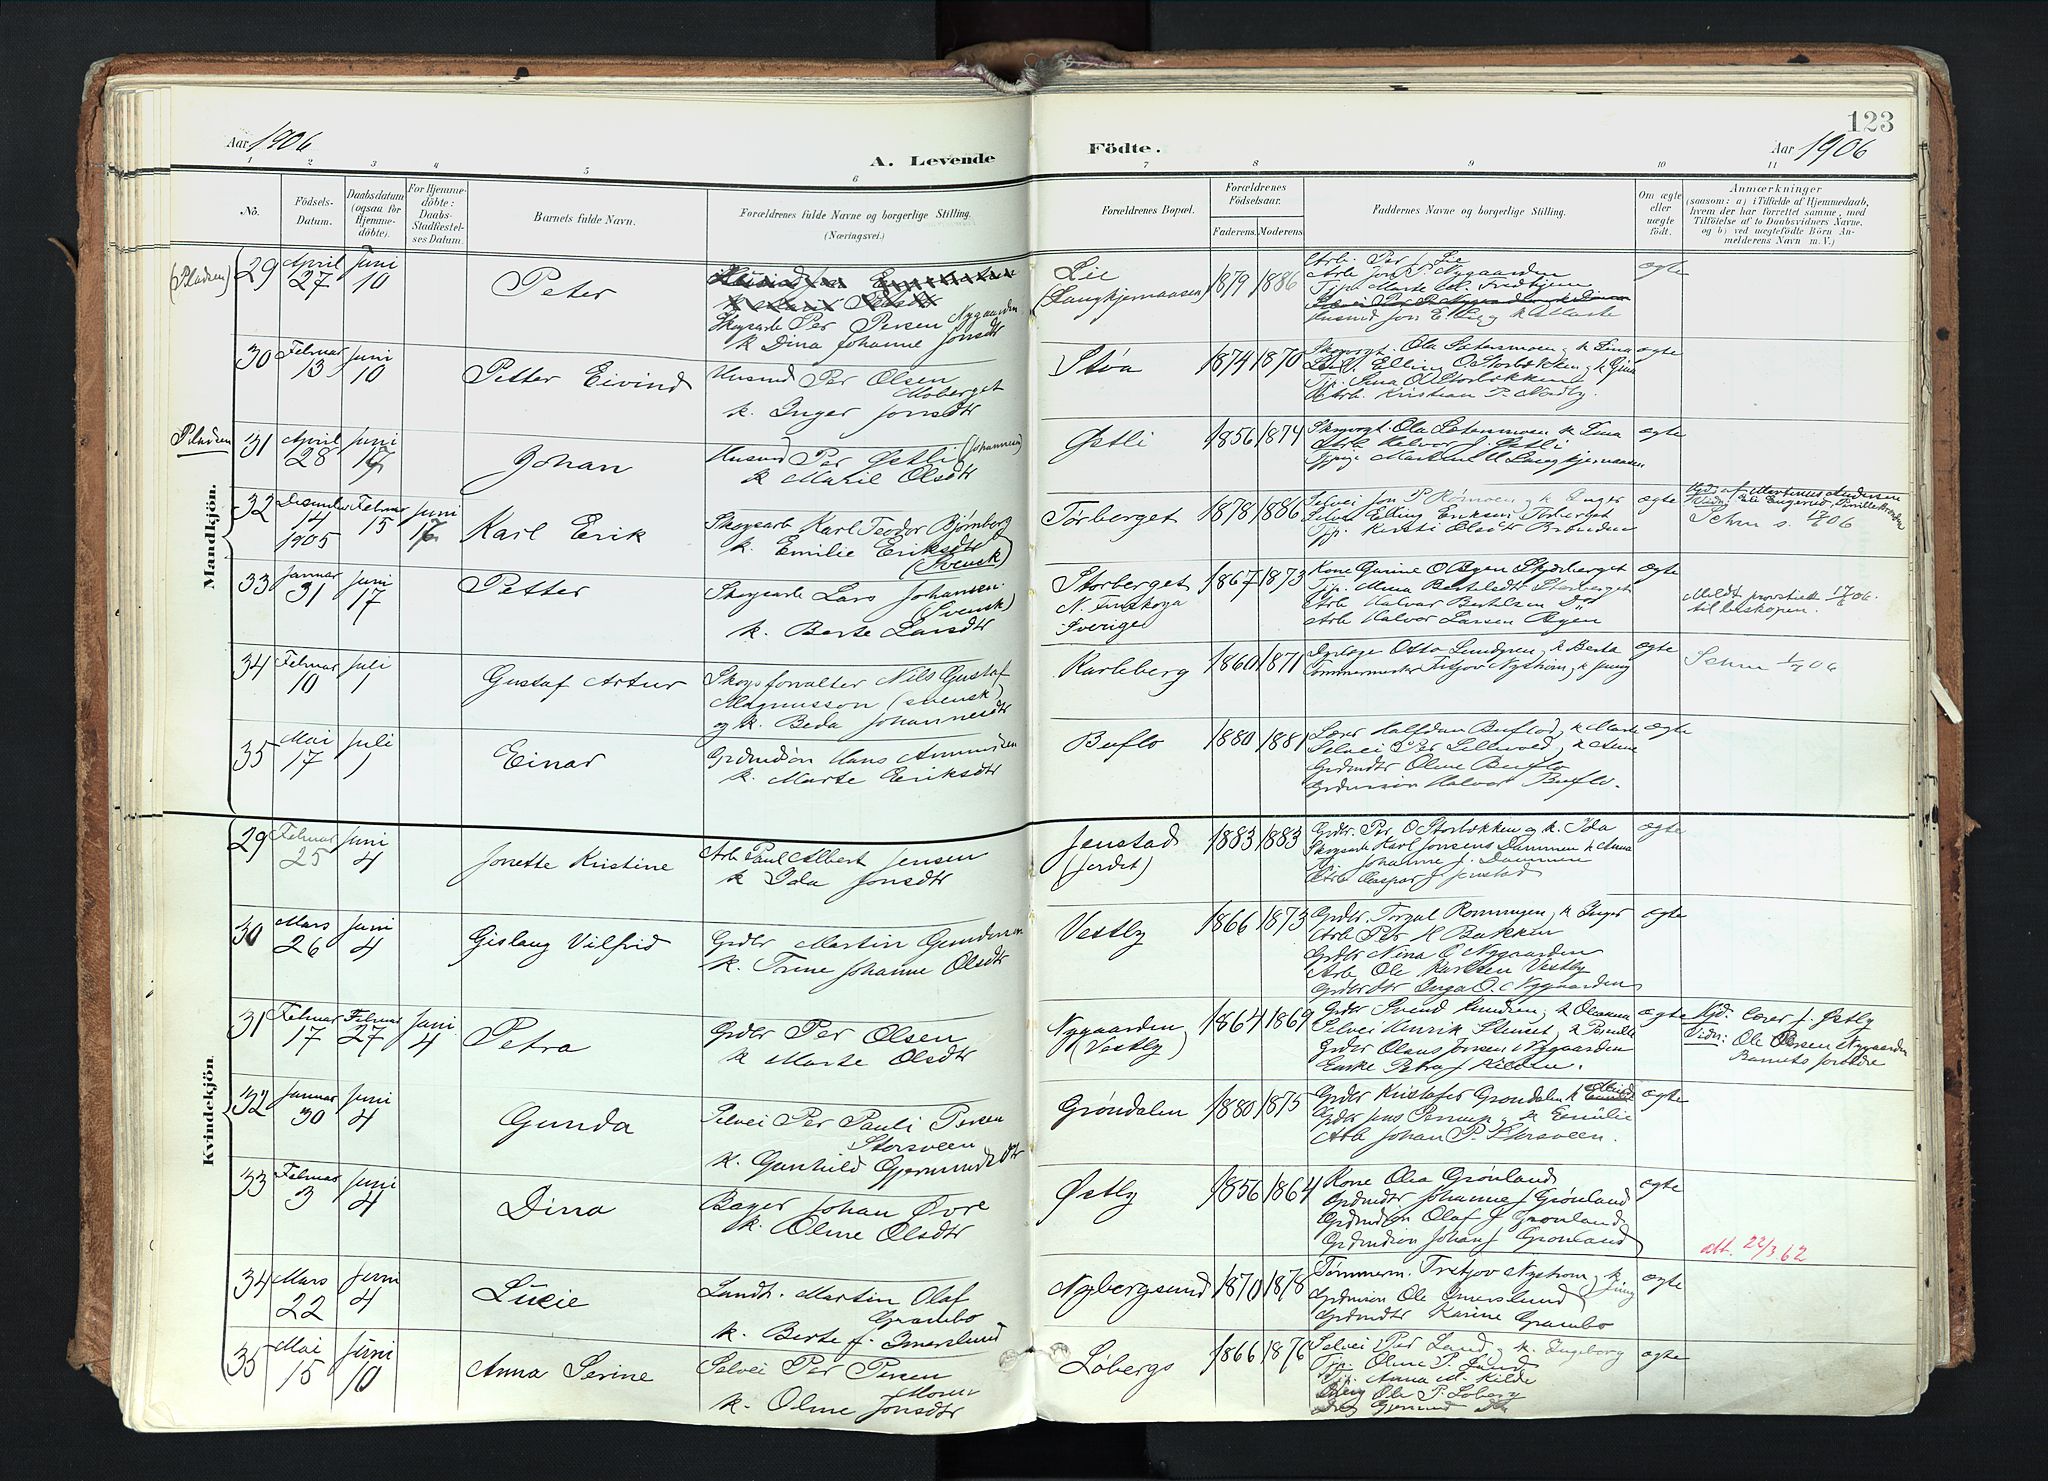 123
Aar 1906
A. Levende
Födte.
Aar 1906
1 2 3 4 5 6 7 8 9 10 11
No.
Födsels-
Datum.
Daabsdatum
(ogsaa for
Hjemme-
döbte).
For Hjemme-
döbte:
Daabs-
Stadfæstel-
ses Datum.
Barnets fulde Navn.
Forældrenes fulde Navne og borgerlige Stilling.
(Næringsvei.)
Forældrenes Bopæl.
Forældrenes
Födselsaar.
Faderens. Moderens.
Faddernes Navne og borgerlige Stilling.
Om ægte
eller
uægte
födt.
Anmærkninger
(saasom: a) i Tilfælde af Hjemmedaab,
hvem der har forrettet samme, med
Tilföielse af to Daabsvidners Navne,
og b) ved uægtefödte Börn An-
melderens Navn m. V.)
Mandkjön.
(Pladsen) 29 April 27 Juni 10 Peter
Skogsarb Per Persen Nygaarden
k Dina Johanne Jonsdtr
Lie
(Langkjernaasen)
1879 1886
Arb. Per J. Lie
Arb Jon P. Nygaarden
Tjp. Marte M. Fredhjem
Husmd Jon E. Lie og k Marte
ægte
30 Februar 13 Juni 10 Petter Eivind
Husmd Per Olsen
Moberget
k. Inger Jonsdtr
Støa 1874 1870
Tjp. Lina O. Storbækken
Arb. Kristian P. Nordby.
ægte
Pladsen 31 April 28 Juni 17 Johan
Husmd Per Østli (Johannesen)
k Maril Olsdtr
Østli 1856 1874
Arb Halvor J. Østli
ægte
32 Desember 14 1905 Februar 15 Juni 17 Karl Erik
Skogsarb Karl Teodor Bjørnborg
k. Emilie Eriksdtr
(Svensk)
Tørberget 1878 1886
Selvei Jon P. Rømoen og k Inger
Selvei Elling Eriksen Tørberget
Tjp. Kirsti Olsdtr Brænden
ægte
33 Januar 31 Juni 17 Petter
Skogsarb Lars Johansen
(Svensk)
k. Berte Larsdtr
Storberget
N. Finskoga
Sverige
1867 1873
Tjp. Anna Bertelsdtr Storberget
Arb Halvor Bertelsen Do
Arb Halvor Larsen Byen
ægte
til biskopen.
34 Februar 10 Juli 1 Gustaf Artur
Skogsforvalter Nils Gustaf
Magnusson (svensk)
og k. Beda Johannesdtr
Karleberg 1860 1871
Disp. Otto Lundgren, k Berta
Tømmermester Tretjov Nystrøm, k Jenny
ægte
35 Mai 17 Juli 1 Einar
Grdmdsøn Hans Amundsen
k. Marte Eriksdtr
Buflo 1880 1881
Lærer Halfdan Buflod, k Marte
Grdmdtr Oline Buflo
Grdmsøn Halvor Buflo.
ægte
Kvindekjön.
29 Februar 25 Juni 4 Jonette Kristine
Arb Paul Albert Jensen
k Ida Jonsdtr
Jenstad
(Jordet)
1883 1883
Grdbr. Per O Storbækken og k. Ida
Skogsarb Karl Jonsens Dammen k Anna
Tjp. Johanne J. Dammen
Arb Caspar J Jenstad
ægte
30 Mars 26 Juni 4 Gislaug Vilfrid
Grdbr Martin Gundersen
k. Trine Johanne Olsdtr
Vestby 1866 1873
Grdbr. Torgal Rønningen, k Inger
Arb Per H Bakken
Grdbr Nina O Nygaarden
Arb Ole Karlsen Vestby
Grdbrdtr Inga O. Nygaarden
ægte
31 Februar 17 Februar 27 Juni 4 Petra
Grdbr Per Olsen
k Marte Olsdtr
Nygaarden
(Vestby)
1864 1869
Grdbr Svend Knudsen, k Oleanna
Grdbr Olaus Jonsen Nygaarden
Enke Petra J Kilden.
ægte
Hjd. Lærer J. Østby
Vidn: Ole Olsen Nygaarden
Barnets forældre
32 Januar 30 Juni 4 Gunda
Selvei Per Pauli Persen
Storsveen
k. Gunhild Gjermundsdtr
Grøndalen 1880 1875
Grdbr Kristofer Grøndalen k
Grdbr Jens Persen, k Emilie
Arb Johan P. Storsveen.
ægte
33 Februar 3 Juni 4 Dina
Bager Johan Øvre
k. Oline Olsdtr
Østby 1856 1864
Kone Olea Grønland
Grdmdtr Johanne J Grønland
Grdmdsøn Olaf J Grønland
Grdmdsøn Johan J Grønland
ægte
att. 22/3 62
34 Mars 22 Juni 4 Lucie
Landh. Martin Olaf
Grambo
k. Berte J. Imerslund
Nybergsund 1870 1878
Tømmerm. Tretjov Nystrøm, k Jenny
Grdmdsøn Ole Imerslund
Grdmdtr Karine Grambo
ægte
35 Mai 15 Juni 10 Anna Serine
Selvei Per Persen
Moren
k. Oline Jonsdtr
Løbergs 1866 1876
Selvei Per Lund, k. Ingeborg
Tjp. Oline P. Lund
Tjp. Anna M. Kilde
Ole P. Løberg
ægte